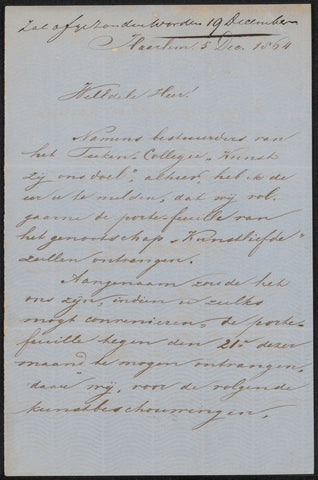 Zal afgezonden worden 19 December
Haarlem 5 Dec. 1864
WelEdele Heer!
Namens bestuurders van
het Teeken-Collegie „Kunst
zij ons doel", alhier, heb ik de
eer u te melden, dat wij vol-
gaarne de porte-feuille van
het genootschap „Kunstliefde"
zullen ontvangen.
Aangenaam zoude het
ons zijn, indien u zulks
mogt convenieren, de porte-
feuille tegen den 21n dezer
maand te mogen ontvangen,
daar wij, voor de volgende
kunstbeschouwingen,